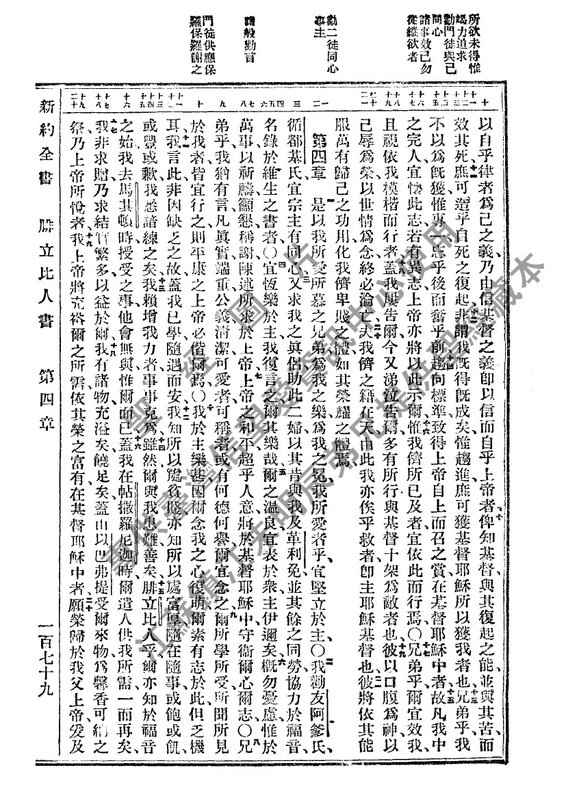 所欲未得惟
竭力追求
勸門徒與己
同心
諸事效己勿
從縱欲者
勸二徒同心
事主
諸般勸言
門徒供應保
羅保羅謝之
以自乎律者爲己之義乃由信基督之義卽以信而自乎上帝者俾知基督與其復起之能並與其苦而
效其死庶可造乎自死之復起非謂我旣得旣成矣惟趨進庶可獲基督耶穌所以獲我者也兄弟乎我
不以爲旣獲惟專一忘乎後而奮乎前趨向標準致得上帝自上而召之賞在基督耶穌中者故凡我中
之完人宜懷此志若有異志上帝亦將以此示爾惟我儕所行所已及者宜依此而行焉〇兄弟乎爾宜效我
且視依我模楷而行者蓋我屢告爾今又涕泣告爾多有所行與基督十架爲敵者也彼以口腹爲神以
己辱爲榮以世情爲念終必淪亡夫我儕之籍在天由此我亦俟乎救者卽主耶穌基督也彼將依其能
服萬有歸己之功用化我儕卑賤之體如其榮耀之體焉
第四章 是以我所愛所慕之兄弟爲我之樂爲我之冕我所愛者乎宜堅立於主〇我勸友阿爹氏
循都基氏宜宗主有同心又求我之眞侶助此二婦以其昔與我及革利免並其餘之同勞協力於福音
名錄於維生之書者〇宜恆樂於主我復言之爾其樂哉爾之溫良宜表於衆主伊邇矣槪勿憂慮惟於
萬事以祈禱籲懇稱謝陳述所求於上帝上帝之和平超乎人意將於基督耶穌中守衞爾心爾志〇兄
弟乎我猶有言凡眞實端重公義清潔可愛者可稱者或有何德何譽爾宜念之爾所學所受所聞所見
於我者皆宜行之則平康之上帝必偕爾焉〇我於主樂甚因爾念我之心復萌爾素有志於此但乏機
耳我言此非因缺乏之故蓋我已學隨遇而安我知所以處貧賤亦知所以處富厚隨在隨事或飽或飢
或豐或歉我悉諳練之矣我賴增我力者事事克爲雖然爾與我患難善矣腓立比人乎爾亦知於福音
之始我去馬其頓時授受之事他會無與惟爾而已蓋我在帖撒羅尼迦時爾遣人供我所需一而再矣
我非求贈乃求結實繁多以益於爾我有諸物充溢矣饒足矣蓋由以巴弗提受爾來物爲馨香可納之
祭乃上帝所悅者我上帝將充裕爾之所需依其榮之富有在基督耶穌中者願榮歸於我父上帝爰及
新約全書 腓立比人書 第四章 一百七十九